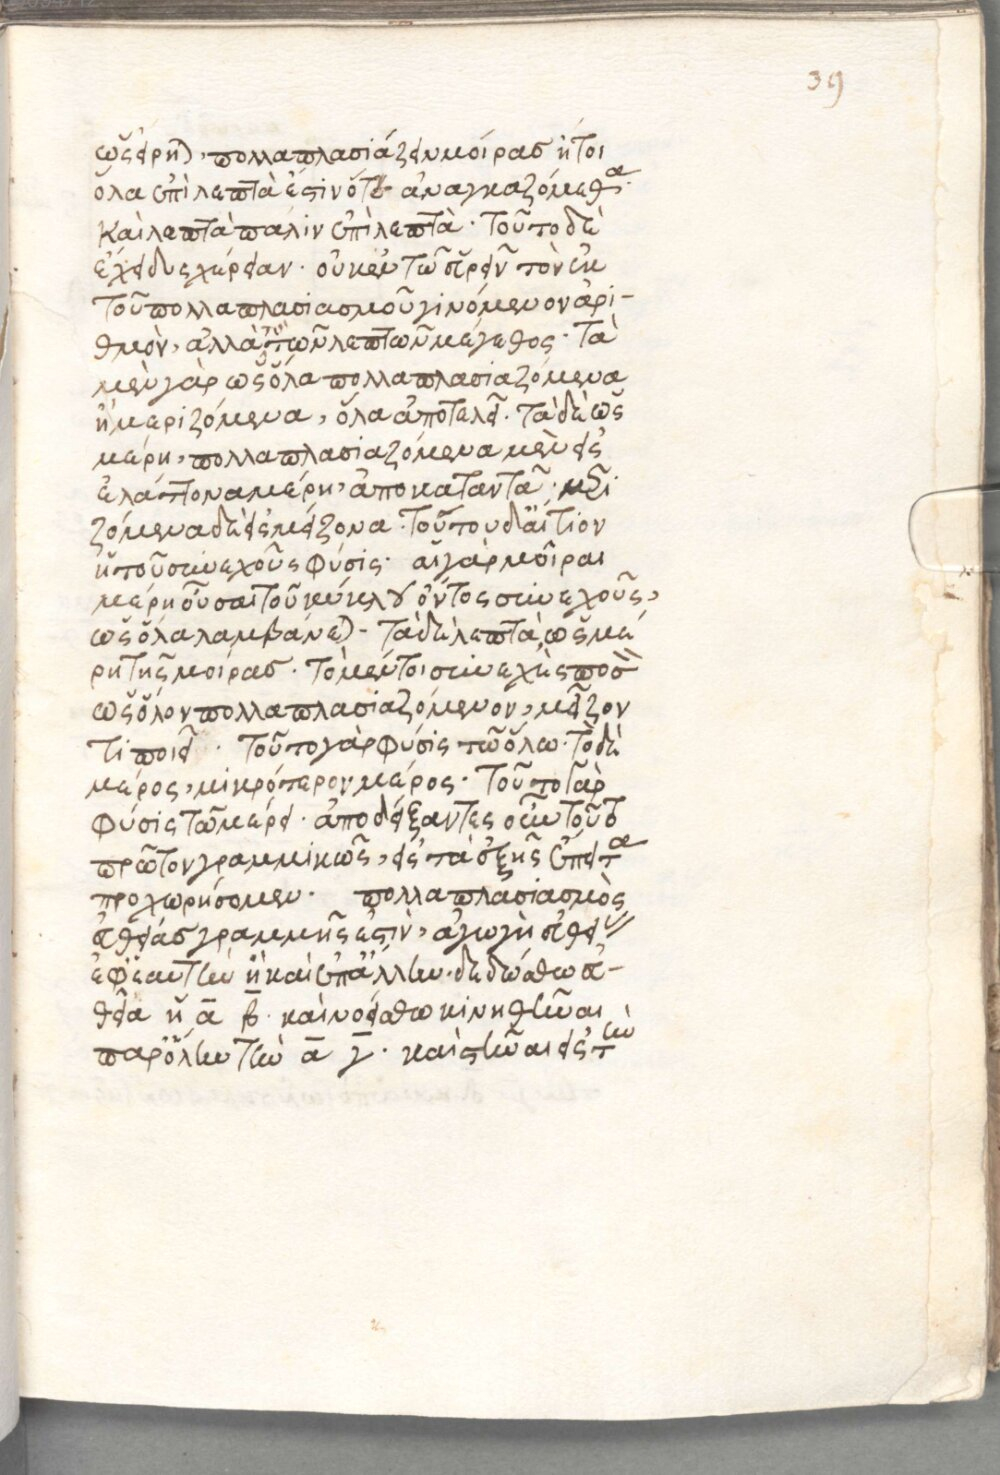 39
ὡς εἴρηται, πολλαπλασιάζειν μοίρας ἤτοι
ὅλα ἐπὶ λεπτὰ ἔστιν ὅτε ἀναγκαζόμεθα·
καὶ λεπτὰ πάλιν ἐπὶ λεπτὰ· τοῦτο δὲ
ἔχει δυσχέρειαν· οὐκ ἐν τῷ εὑρεῖν τὸν ἐκ
τοῦ πολλαπλασιασμοῦ γινόμενον ἀρι-
θμὸν, ἀλλὰ τὸ τῶν λεπτῶν μέγεθος· τὰ
μὲν γὰρ ὡς ὅλα πολλαπλασιαζόμενα
ἢ μεριζόμενα, ὅλα ἀποτελεῖ· τὰ δὲ ὡς
μέρη, πολλαπλασιαζόμενα μὲν εἰς
ἐλάττονα μέρη, ἀποκαταντᾶ· μερι
ζόμενα δὲ εἰς μείζονα· τούτου δ' αἴτιον
ἡ τοῦ συνεχοῦς φύσις· αἱ γὰρ μοῖραι
μέρη οὖσαι τοῦ κύκλου ὄντος συνεχοῦς,
ὡς ὅλα λαμβάνεται· τὰ δὲ λεπτὰ, ὡς μέ
ρη τῆς μοίρας· τὸ μέντοι συνεχὲς ποσὸν
ὡς ὅλον πολλαπλασιαζόμενον, μεῖζον
τι ποιεῖ· τοῦτο γὰρ φύσις τῷ ὅλῳ· τὸ δὲ
μέρος, μικρότερον μέρος· τοῦτο γὰρ
φύσις τῷ μέρει· ἀποδείξαντες οὖν τοῦτο
πρῶτον γραμμικῶς, εἰς τὰ ἑξῆς ἔπειτα
προχωρήσομεν· πολλαπλασιασμὸς
εὐθείας γραμμῆς ἐστὶν, ἀγωγὴ εὐθείας
ἐφ' ἑαυτὴν ἢ καὶ ἐπ' ἄλλην· δεδόσθω εὐ-
θεῖα ἡ α β· καὶ νοείσθω κινηθῆναι
παρ' ὅλην τὴν α γ· καὶ στῆναι εἰς τὴν